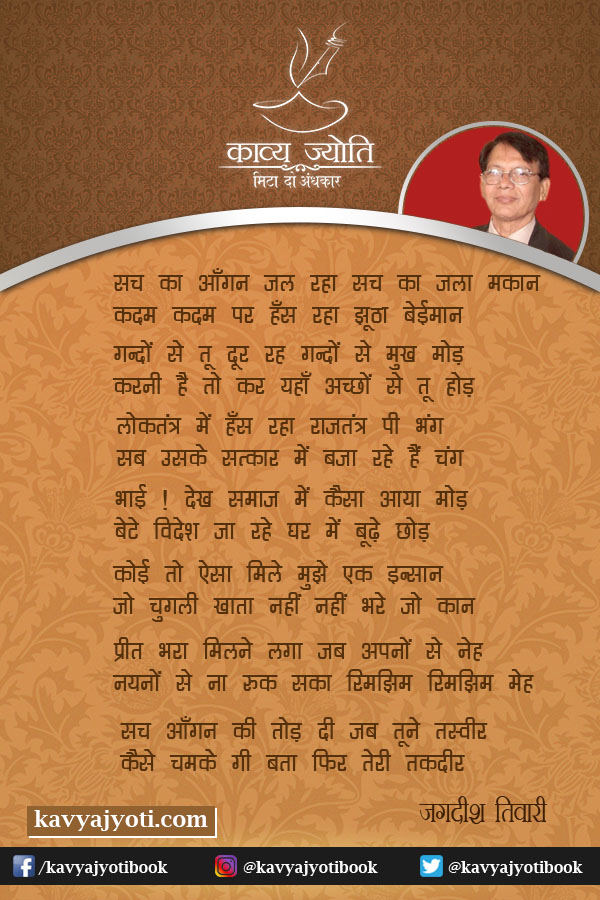 काव्य ज्योति
मिटा दो अंधकार
सच का आँगन जल रहा सच का जला मकान
कदम कदम पर हँस रहा झूठा बेईमान
गन्दों से तू दूर रह गन्दों से मुख मोड़
करनी है तो कर यहाँ अच्छों से तू होड़
लोकतंत्र में हँस रहा राजतंत्र पी भंग
सब उसके सत्कार में बजा रहे हैं चंग
भाई ! देख समाज में कैसा आया मोड़
बेटे विदेश जा रहे घर में बूढ़े छोड़
कोई तो ऐसा मिले मुझे एक इन्सान
जो चुगली खाता नहीं नहीं भरे जो कान
प्रीत भरा मिलने लगा जब अपनों से नेह
नयनों से ना रुक सका रिमझिम रिमझिम मेह
सच आँगन की तोड़ दी जब तूने तस्वीर
कैसे चमके गी बता फिर तेरी तकदीर
जगदीश तिवारी
kavyajyoti.com
/kavyajyotibook @kavyajyotibook @kavyajyotibook